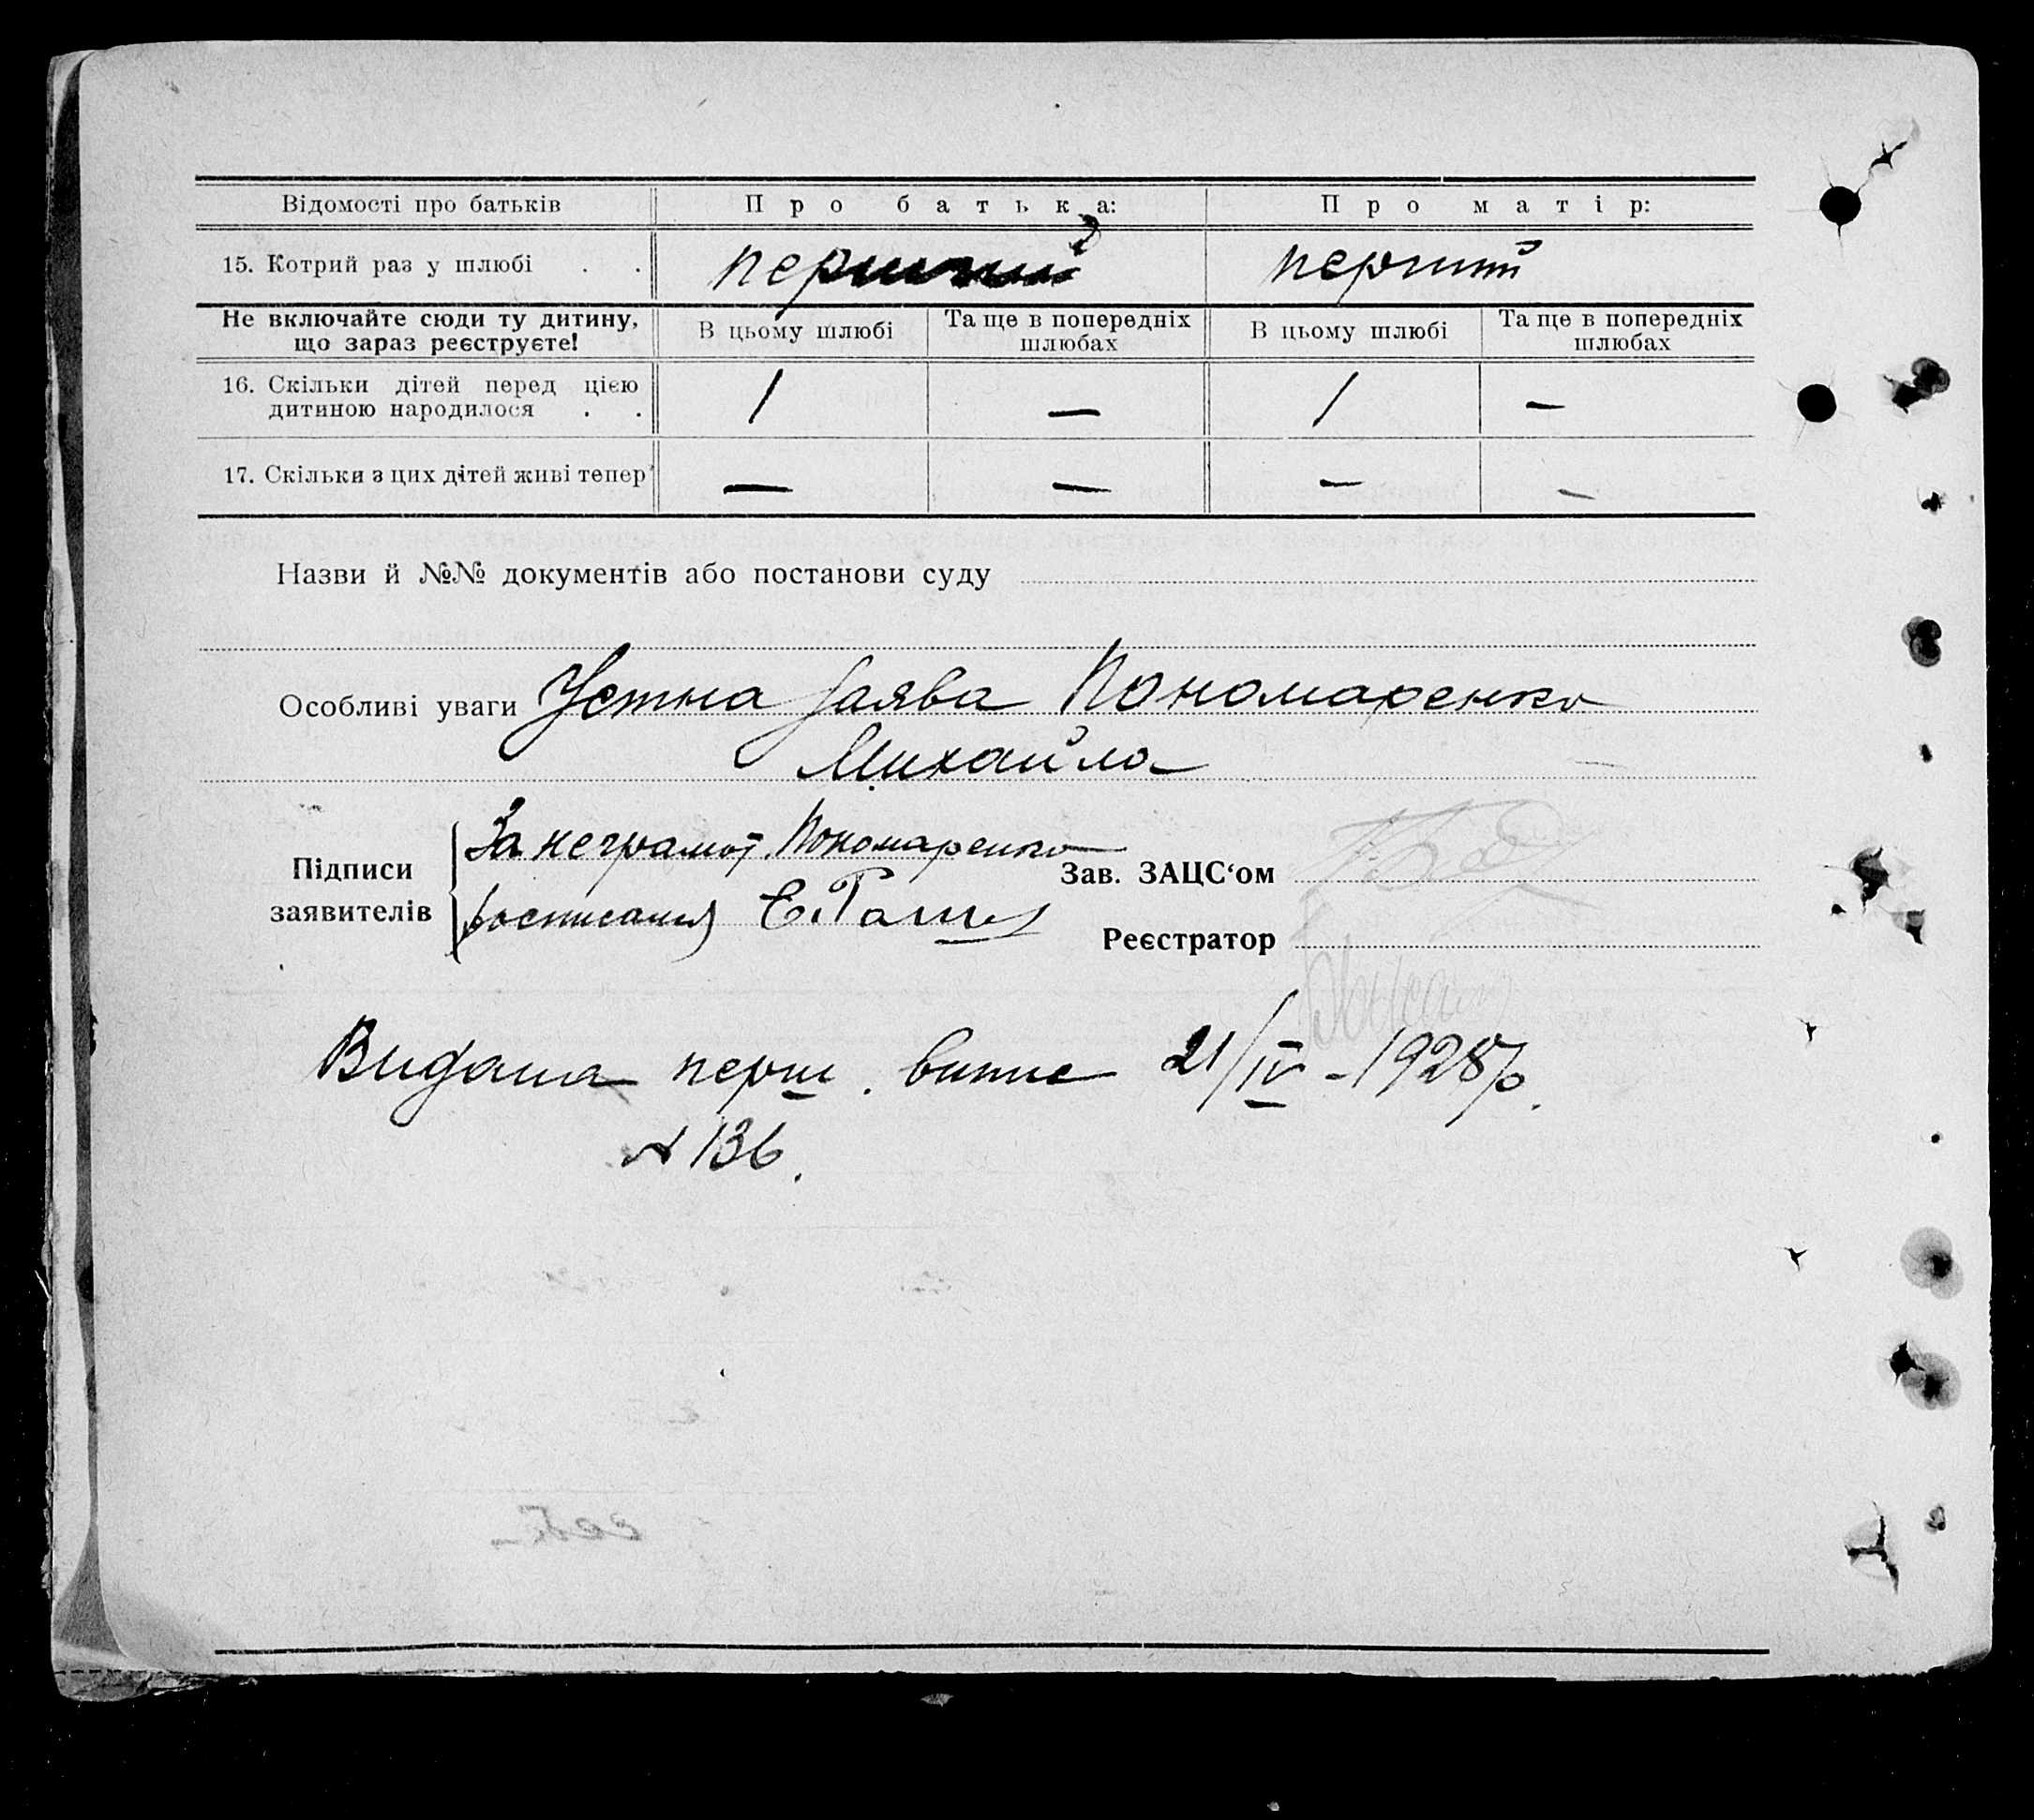 Відомості про батьків Про батька: Про матір:
15. Котрий раз у шлюбі . . перший перший
Не включайте сюди ту дитину, що зараз реєструєте! В цьому шлюбі Та ще в попередніх шлюбах В цьому шлюбі Та ще в попередніх шлюбах
16. Скільки дітей перед цією
дитиною народилося . . 1 — 1 —
17. Скільки з цих дітей живі тепер — — — —
Назви й №№ документів або постанови суду
Особливі уваги Устна заява Пономаренко
Михайла
Підписи заявителів За неграмот. Пономаренко
Зав. ЗАЦС‘ом
Реєстратор
Видана перш. випис 21/IV - 1928 р.
№ 136.